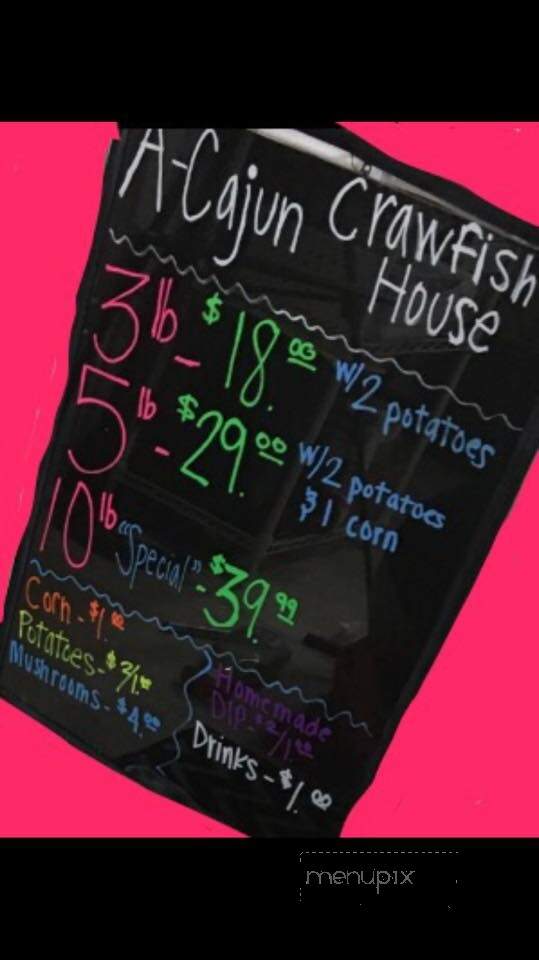 A-Cajun Crawfish
House
3lb - $18.00 w/2 potatoes
5lb - $29.00 w/2 potatoes
$1 corn
10lb "Special" - $39.99
Corn - $1.00
Potatoes - $2/1.00
Mushrooms - $4.00
Homemade
Dip - $2/1.00
Drinks - $1.00
menupix